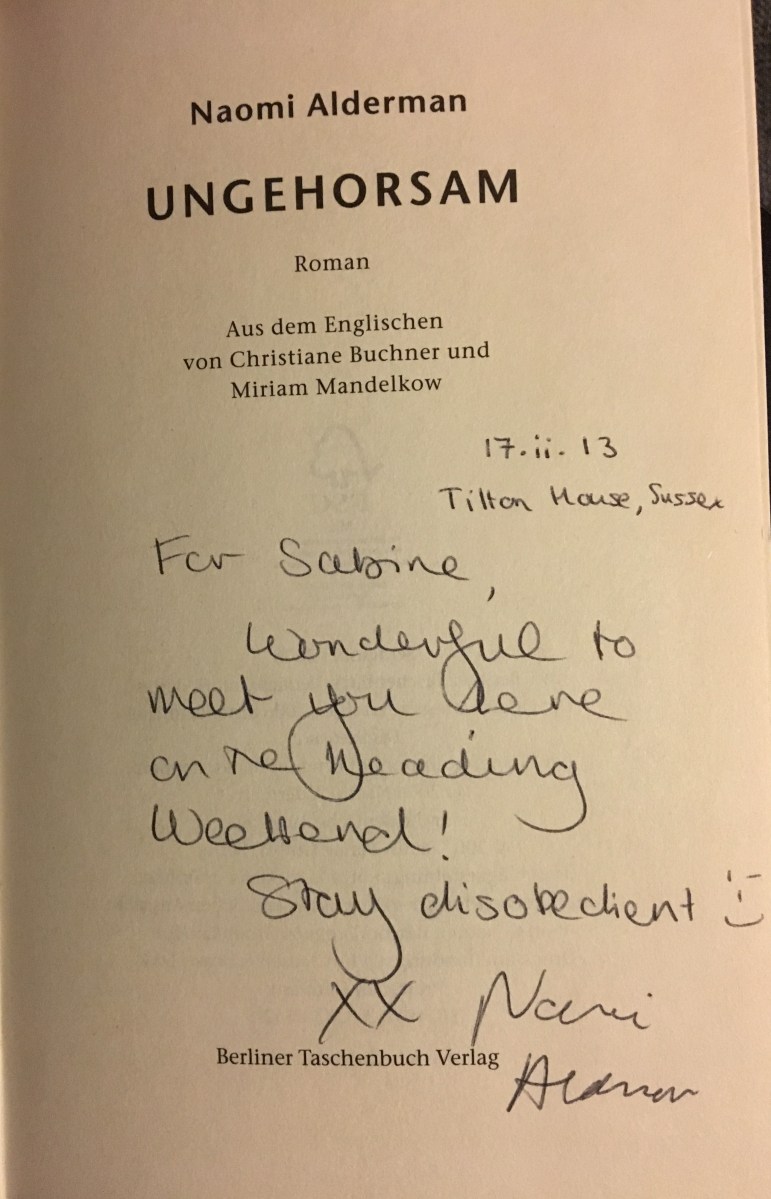 Naomi Alderman
UNGEHORSAM
Roman
Aus dem Englischen
von Christiane Buchner und
Miriam Mandelkow
17.ii.13
Tilton House, Sussex
For Sabine,
Wonderful to
meet you here
on the Reading
Weekend!
Stay disobedient :-)
XX Naomi
Alderman
Berliner Taschenbuch Verlag